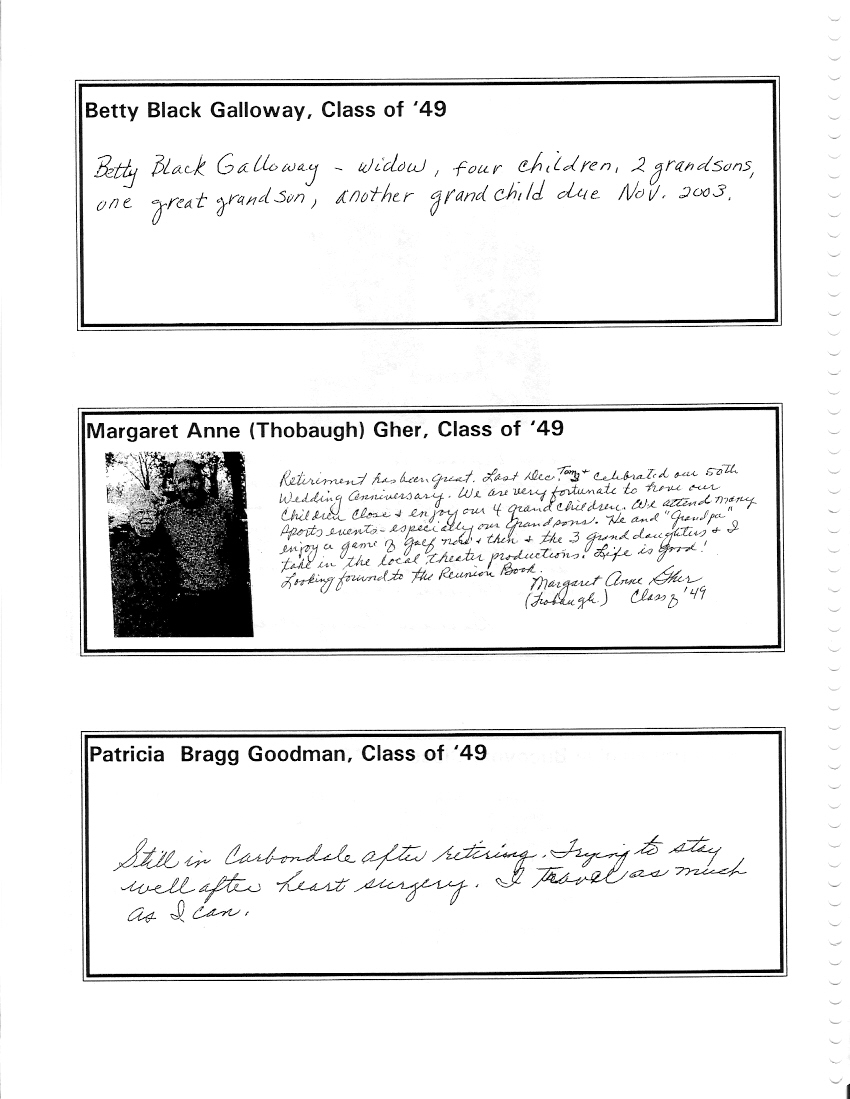 Betty Black Galloway, Class of '49
Betty Black Galloway - widow, four children, 2 grandsons,
one great grandson, another grandchild due Nov. 2003.
Margaret Anne (Thobaugh) Gher, Class of '49
Retiriment has been great. Last Dec. Tom & I celebrated our 50th
Wedding Anniversary. We are very fortunate to have our
Children close & enjoy our 4 grandchildren. We attend many
sports events - especially our grandsons. He and "Grandpa"
enjoy a game of golf now & then & the 3 granddaughters & I
take in the local theater productions. Life is good!
Looking forward to the Reunion Book.
Margaret Anne Gher
Class of '49
Patricia Bragg Goodman, Class of '49
Still in Carbondale after retiring. Trying to stay
well after heart surgery. I travel as much
as I can.